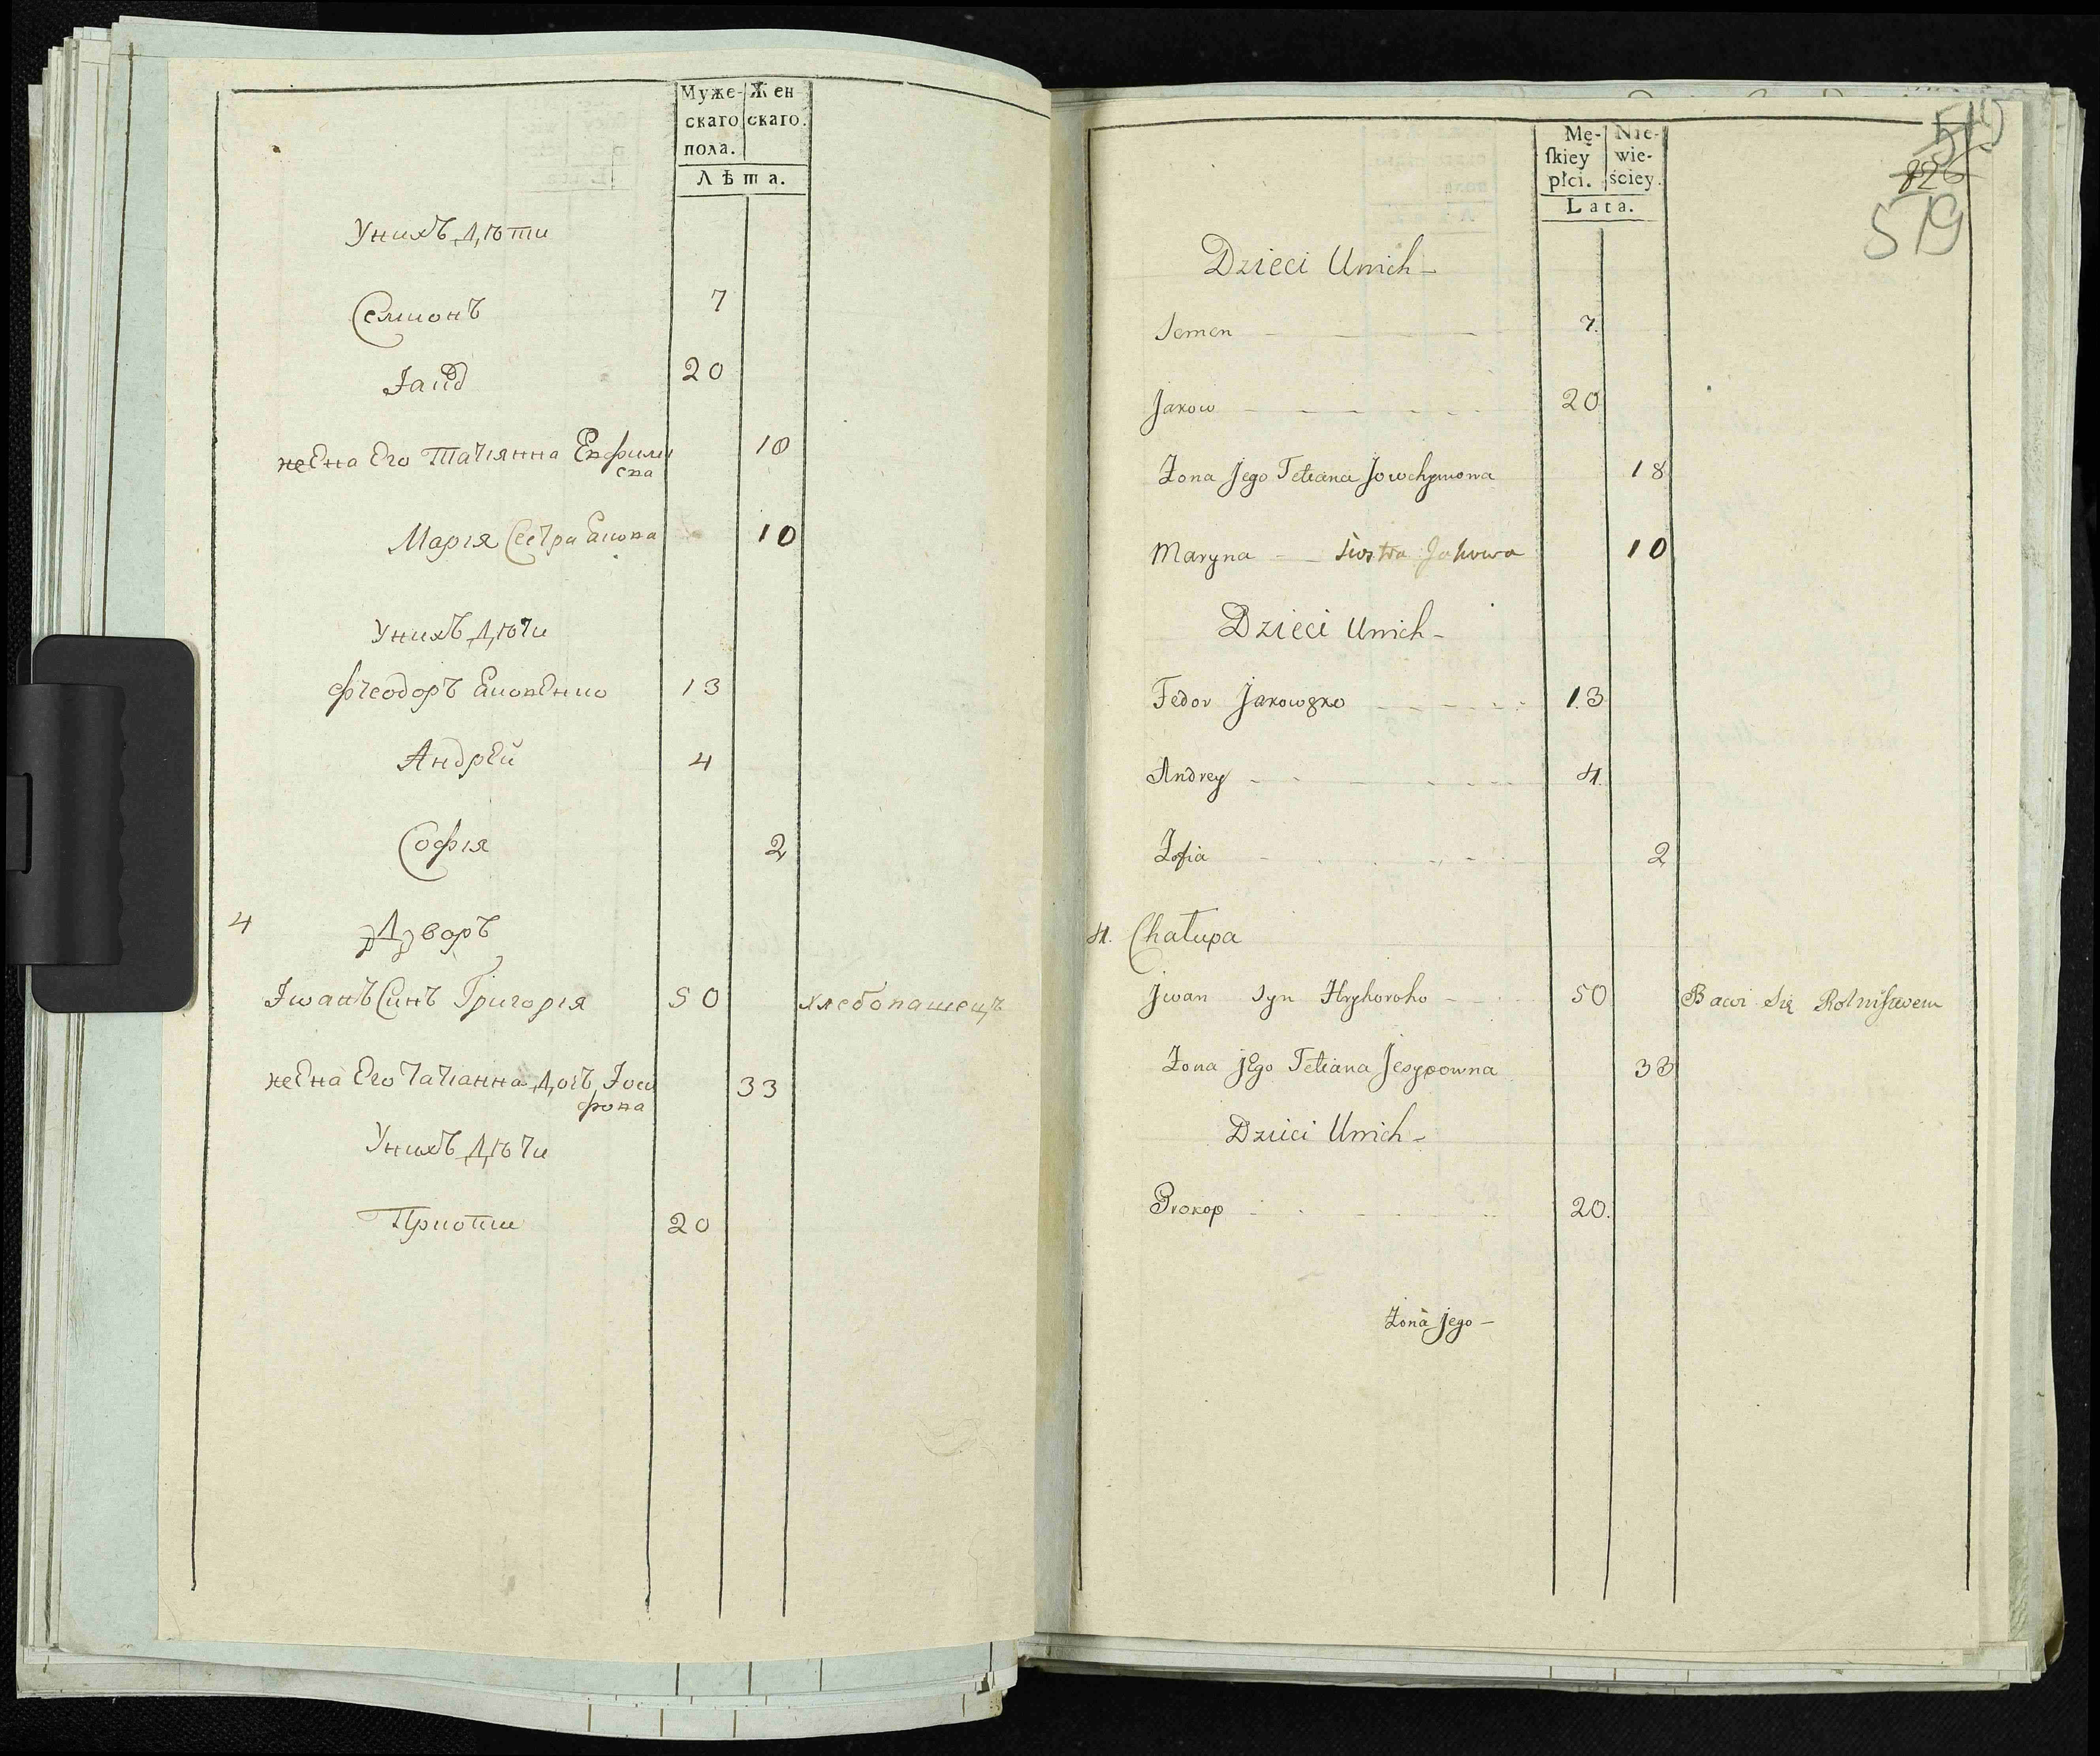 Муже-
скаго
пола.
Жен
скаго.
Лѣта.
Унихъ Дѣти
Семионъ 7
20
жена Его Татіянна 18
Марія Сестра 10
Унихъ Дѣти
Фѣеодоръ 13
Андрей 4
Софія 2
4 Дворъ
Іванъ Синъ Григорія 50 хлебопашецъ
жена Его Татіанна дочь Іоси
фова 33
Унихъ Дѣти
20
Mę-
ſkiey
płci.
Nie-
wie-
ściey.
Lata.
519
826
579
Dzieci Unich -
Semen 7.
Jakow 20
Żona Jego Tetiana Jowchymowa 18
Maryna siostra Jakowa 10
Dzieci Unich -
Fedor 13
Andrey 4.
Zofia 2
4. Chałupa
Jwan Syn Hryhoroho 50 Bawi się Rolnistwem
Żona jEgo Tetiana Jesypowna 33
Dzieci Unich -
Prokop 20.
Żona jego -